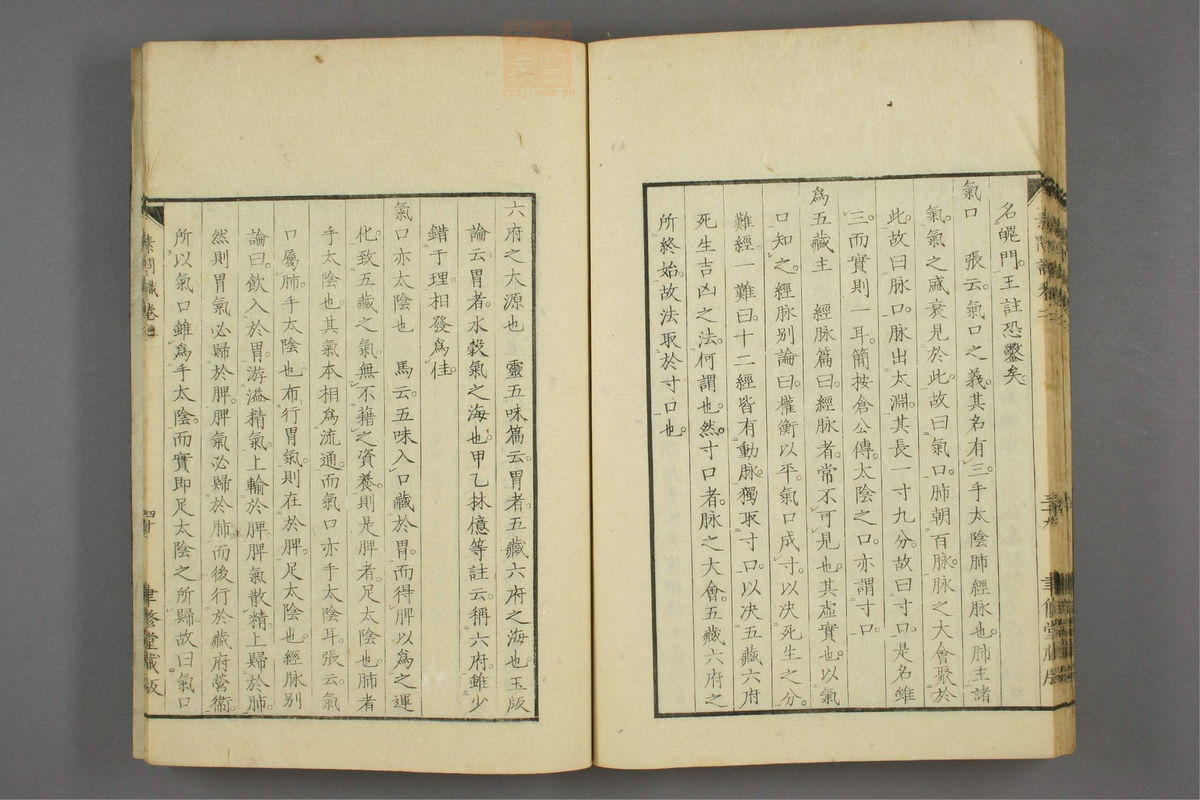 名魄門王註恐鑿矣
氣口　張云氣口之義其名有三手太陰肺經脉也肺主諸
氣氣之盛衰見於此故曰氣口肺朝百脉脉之大會聚於
此故曰脉口脉出太淵其長一寸九分故曰寸口是名雖
三而實則一耳簡按倉公傳太陰之口亦謂寸口
爲五藏主　經脉篇曰經脉者常不可見也其虛實也以氣
口知之經脉別論曰權衡以平氣口成寸以决死生之分
難經一難曰十二經皆有動脉獨取寸口以决五藏六府
死生吉凶之法何謂也然寸口者脉之大會五藏六府之
所終始故法取於寸口也
六府之大源也　靈五味篇云胃者五藏六府之海也玉版
論云胃者水穀氣之海也甲乙林億等註云稱六府雖少
錯于理相發爲佳
氣口亦太陰也　馬云五味入口藏於胃而得脾以爲之運
化致五藏之氣無不藉之資養則是脾者足太陰也肺者
手太陰也其氣本相爲流通而氣口亦手太陰耳張云氣
口屬肺手太陰也布行胃氣則在於脾足太陰也經脉別
論曰飲入於胃游溢精氣上輸於脾脾氣散精上歸於肺
然則胃氣必歸於脾脾氣必歸於肺而後行於藏府營衞
所以氣口雖爲手太陰而實即足太陰之所歸故曰氣口
素問識卷二
四十
聿修堂藏版
zysj.com.cn